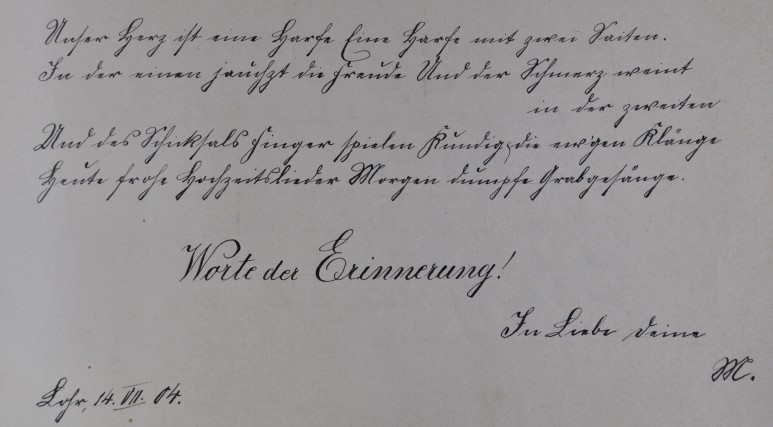 Unser Herz ist eine Harfe Eine Harfe mit zwei Saiten.
In der einen jauchzt die Freude Und der Schmerz weint
in der zweiten
Und des Schiksals Finger spielen Kundig, die ew'gen Klänge
Heute frohe Hochzeitslieder Morgen dumpfe Grabgesänge.
Worte der Erinnerung!
In Liebe deine
M.
Lohr, 14. VII. 04.